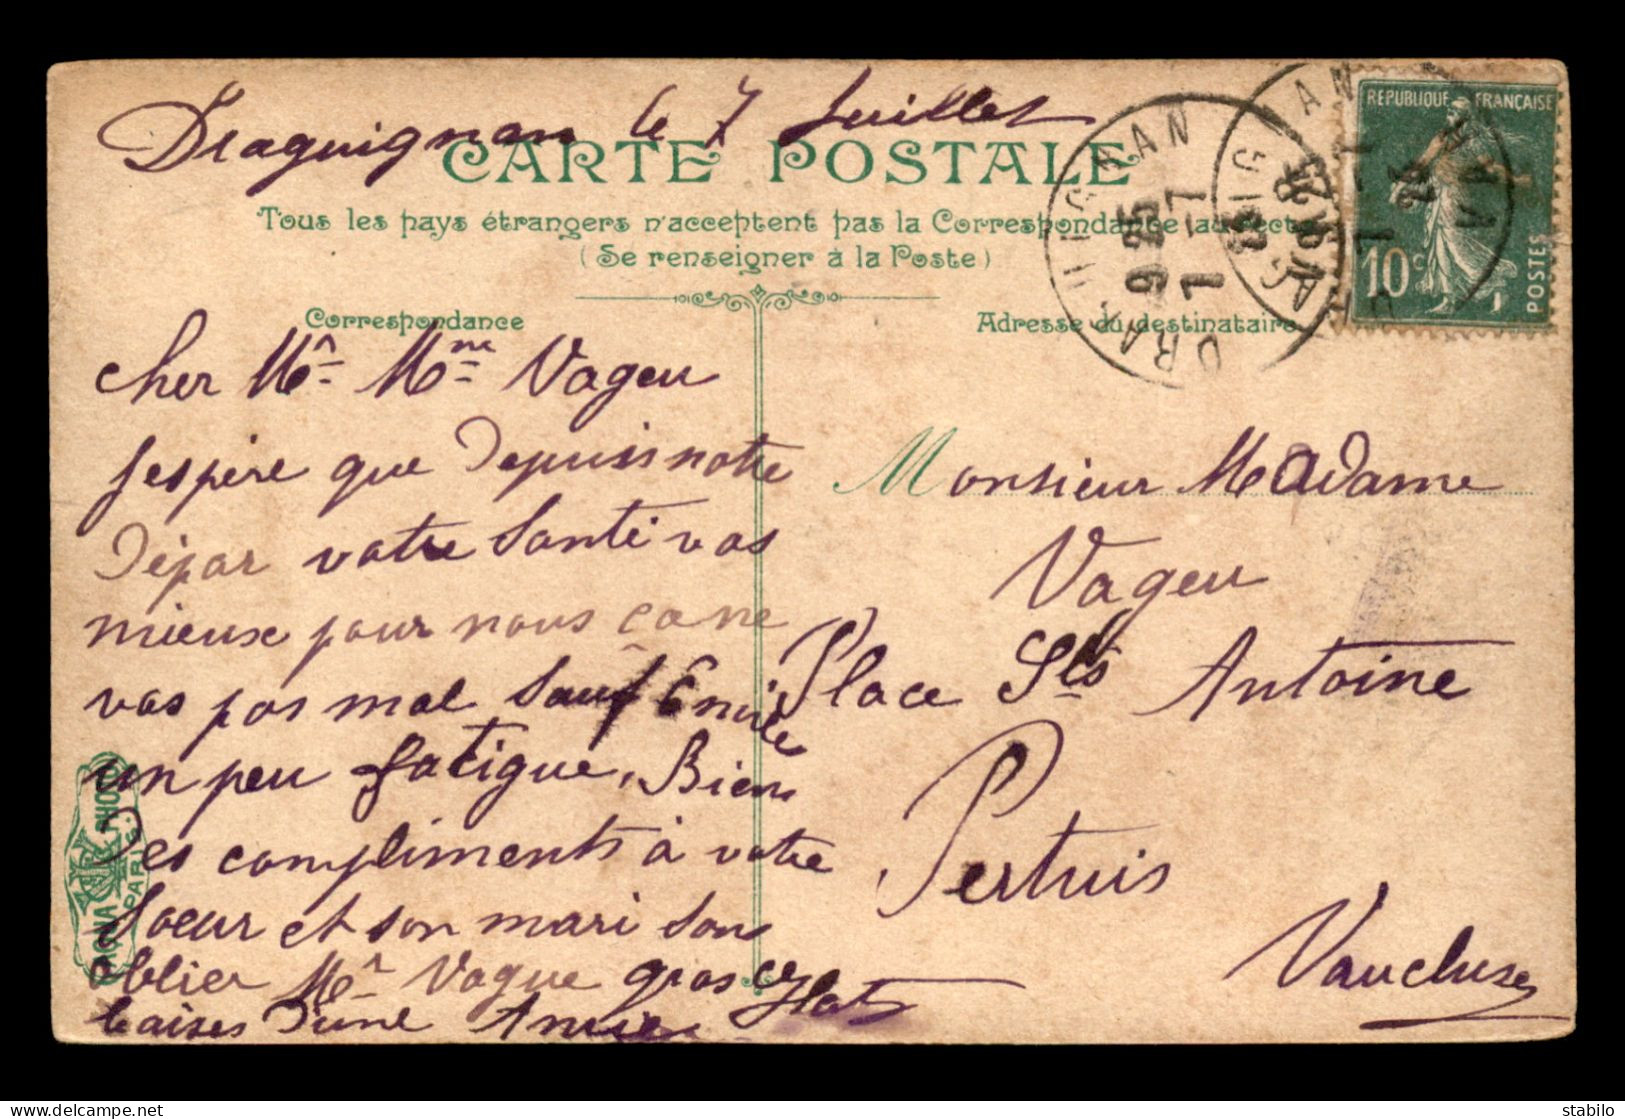 Draguignan le 7 Juillet
CARTE POSTALE
Tous les pays étrangers n'acceptent pas la Correspondance au recto
(Se renseigner à la Poste)
Correspondance
cher Mr Mme Vageu
Jespère que Depuis notre
Dépar votre Santé vas
mieux pour nous ça ne
vas pas mal Sauf Emile
un peu fatigue, Bien
Des compliments à votre
Soeur et son mari Sans
oblier Mr Vague gros
baises D'une Amie
Adresse du destinataire
Monsieur Madame
Vageu
Place St Antoine
Pertuis
Vaucluse
REPUBLIQUE FRANÇAISE
10c
POSTES
DRAGUIGNAN
9 25
7 -7
VAR
PARIS
delcampe.net
stabilo